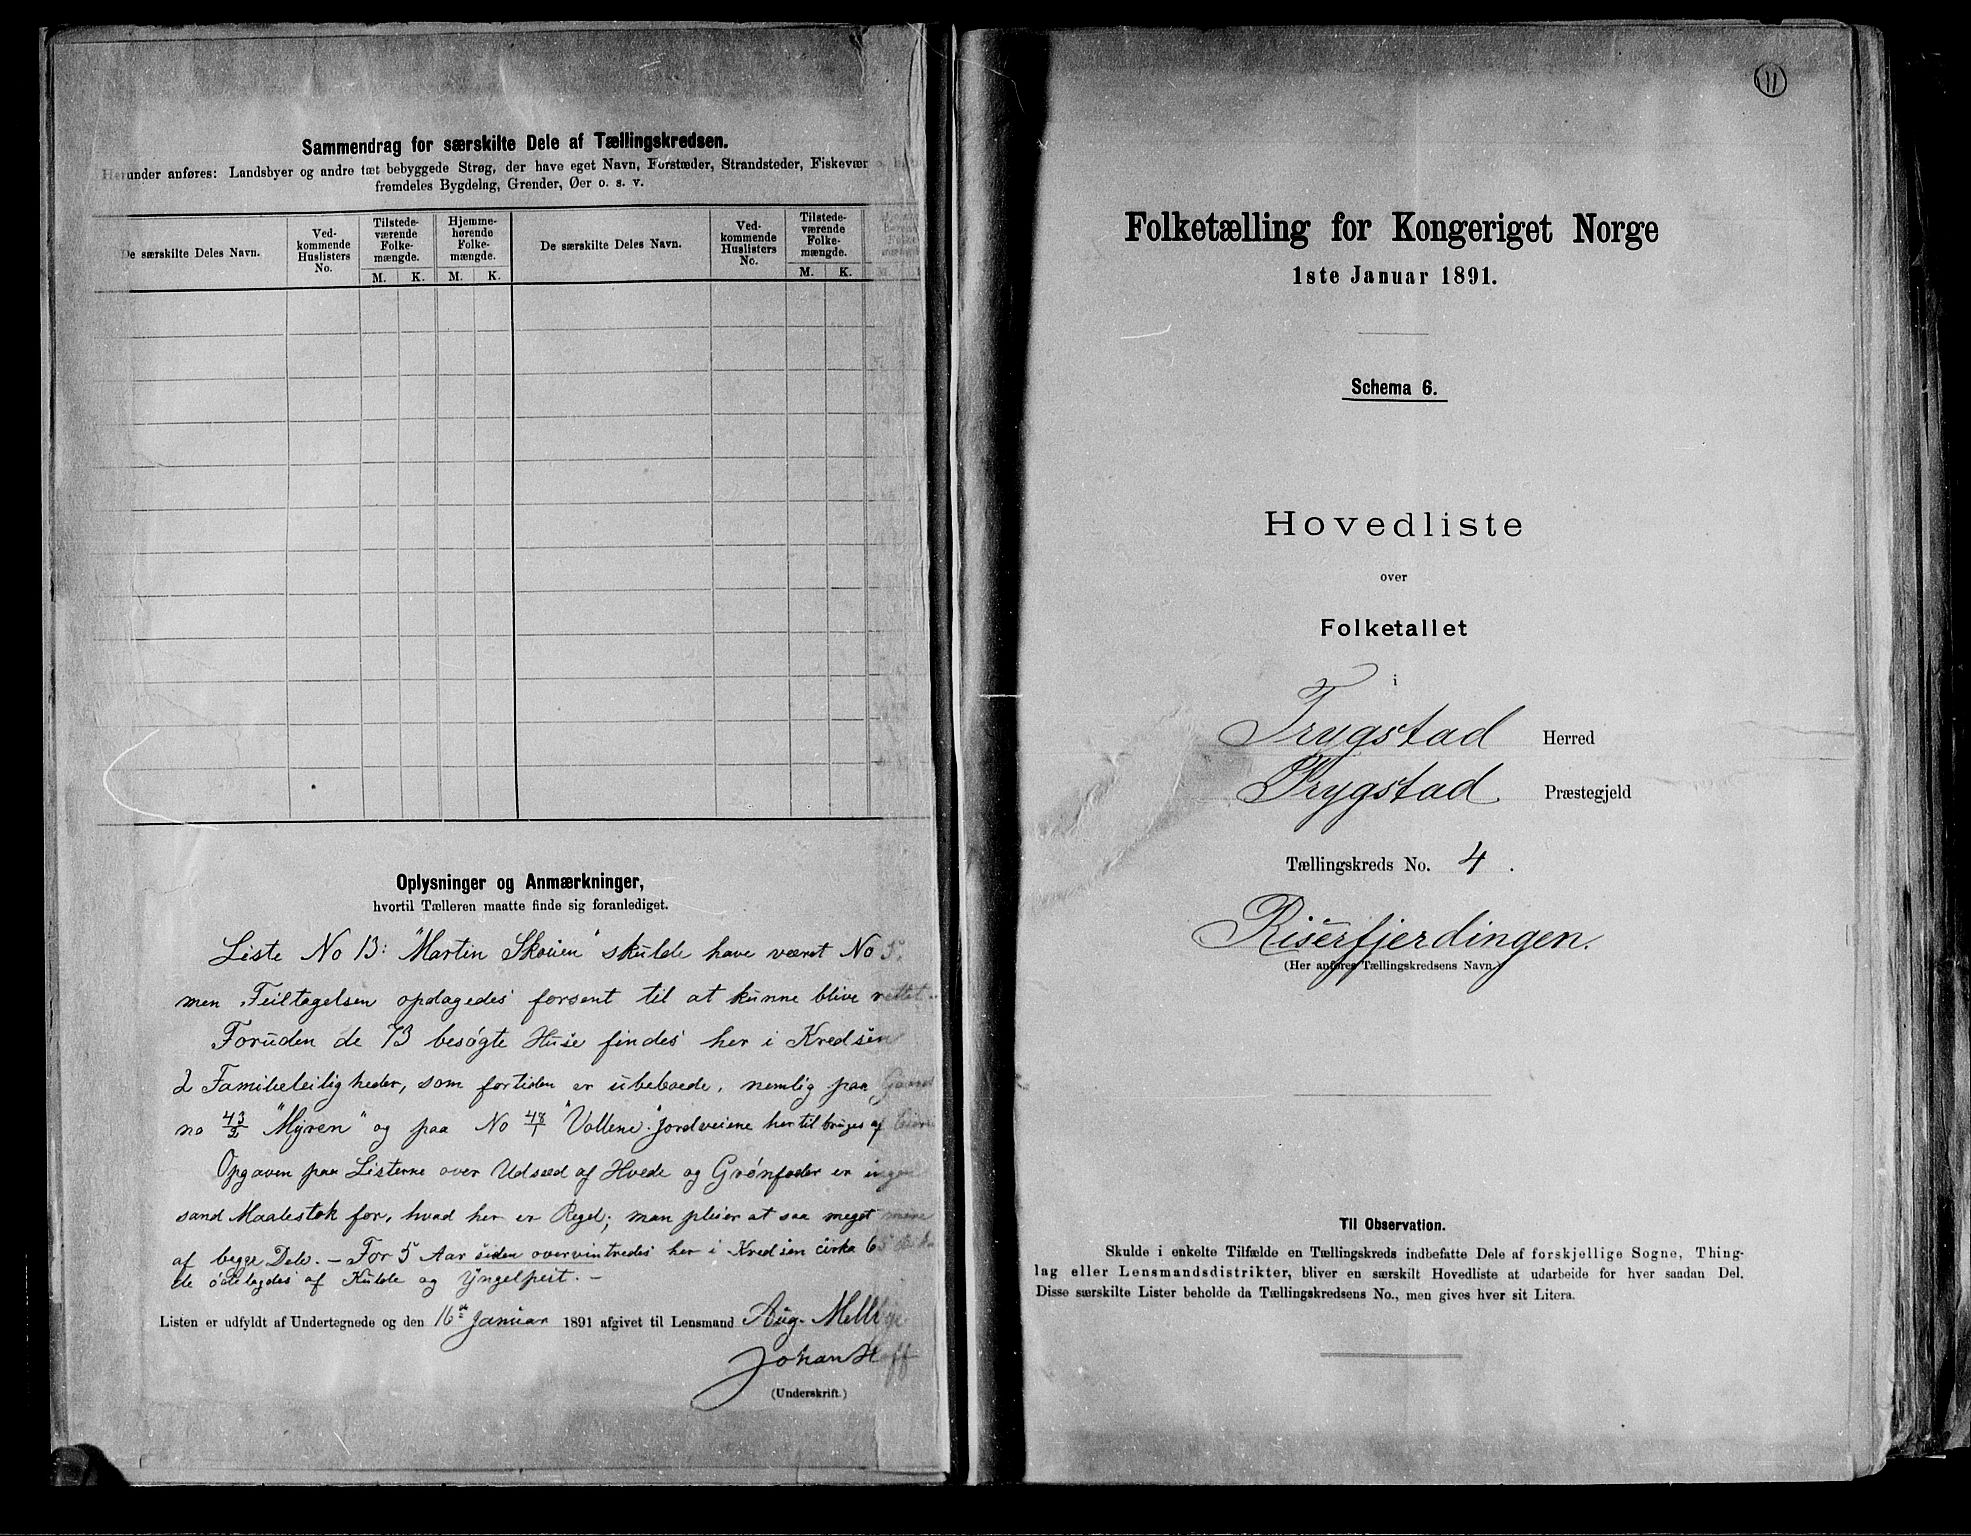 Sammendrag for særskilte Dele af Tællingskredsen.
Herunder anføres: Landsbyer og andre tæt bebyggede Strøg, der have eget Navn, Forstæder, Strandsteder, Fiskevær
fremdeles Bygdelag, Grender, Øer o. s. v.
De særskilte Deles Navn.
Ved-
kommende
Huslisters
No.
Tilstede-
værende
Folke-
mængde.
Hjemme-
hørende
Folke-
mængde.
De særskilte Deles Navn.
Ved-
kommende
Huslisters
No.
Tilstede-
værende
Folke-
mængde.
M. K. M. K. M. K.
Oplysninger og Anmærkninger,
hvortil Tælleren maatte finde sig foranlediget.
Liste No 13: "Martin Skouen" skulde have været No 5.
men Feiltagelsen opdagedes forsent til at kunne blive rettet.
Foruden de 73 besøgte Huse findes her i Kredsen
2 Familieleiligheder, som fortiden er ubeboede, nemlig paa
no 43/2 "Myren" og paa No 48/1 "Vollene". Jordveiene hertil bruges af
Opgaven paa Listerne over Udsæd af Hvede og Grønfoder er ingen
sand Maalestok for, hvad her er Regel; man pleier at saa meget mere
af begge Dele. – For 5 Aar siden overvintredes her i Kredsen cirka 65
de ødelagdes af Kulde og Yngelpest. –
Listen er udfyldt af Undertegnede og den 16de Januar 1891 afgivet til Lensmand Aug. Mellbye
Johan Hoff
(Underskrift.)
11
Folketælling for Kongeriget Norge
1ste Januar 1891.
Schema 6.
Hovedliste
over
Folketallet
i
Trygstad Herred
Trygstad Præstegjeld
Tællingskreds No. 4.
Riserfjerdingen.
(Her anføres Tællingskredsens Navn.)
Til Observation.
Skulde i enkelte Tilfælde en Tællingskreds indbefatte Dele af forskjellige Sogne, Thing-
lag eller Lensmandsdistrikter, bliver en særskilt Hovedliste at udarbeide for hver saadan Del.
Disse særskilte Lister beholde da Tællingskredsens No., men gives hver sit Litera.